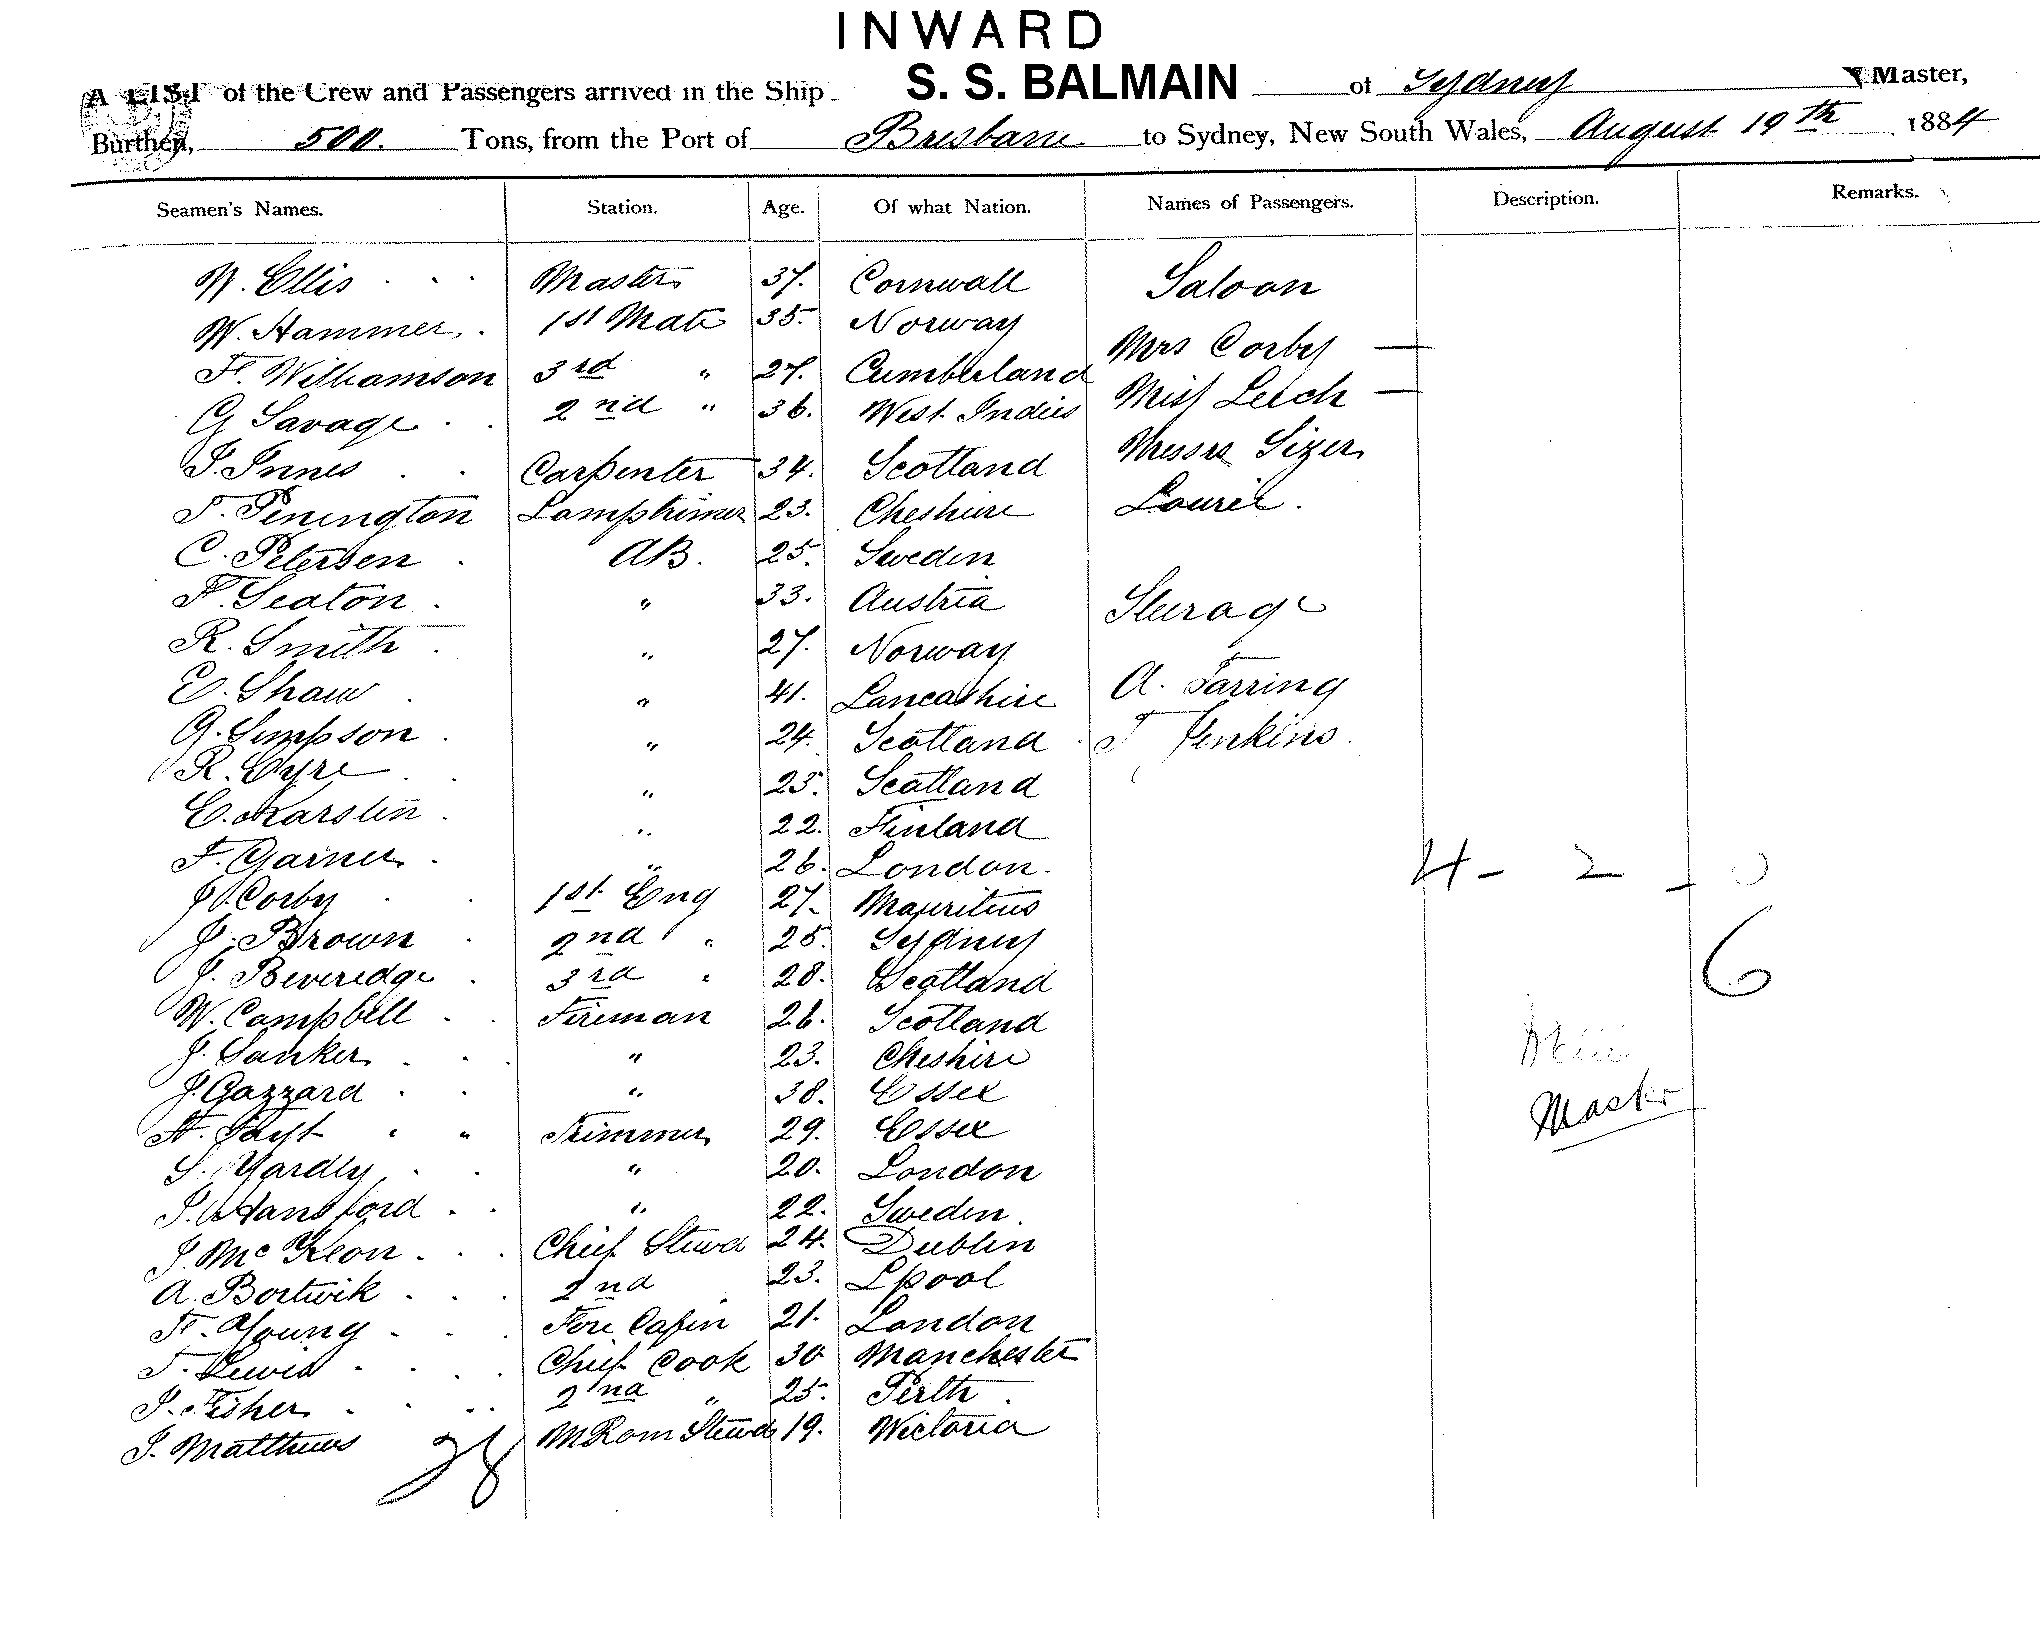 INWARD
A LIST of the Crew and Passengers arrived in the Ship S. S. BALMAIN of Sydney Master,
Burthen, 500. Tons, from the Port of Brisbane to Sydney, New South Wales, August 19th 1884
Seamen's Names. Station. Age. Of what Nation. Names of Passengers. Description. Remarks.
W. Ellis Master 37. Cornwall Saloon
W. Hammer 1st Mate 35. Norway
Mrs Corby —
H. Williamson 3rd " 27. Cumberland
Miss Leech —
G Savage 2nd " 36. West Indies
Messrs Sizer
J. Innes Carpenter 34. Scotland
Lourie.
T. Penington Lamptrimer 23. Cheshire
C. Petersen AB. 25. Sweden
F. Seaton " 33. Austria Steerage
R. Smith " 27. Norway
E. Shaw " 41. Lancashire A. Farring
G. Simpson " 24. Scotland T Jenkins.
R. Eyre " 25. Scotland
C. Karslin " 22. Finland
F. Garner " 26. London.
4 - 2 - 0
J Corby 1st Eng 27. Mauritius
J. Brown 2nd " 25. Sydney
6
J. Beveridge 3rd " 28. Scotland
W. Campbell Fireman 26. Scotland
J. Sanker " 23. Cheshire
J. Gazzard " 38. Essex
Master
H. Trimmer 29. Essex
S. Yardly " 20. London
J. Hansford " 22. Sweden.
J. McKeon Chief Stewd 24. Dublin
A. Bortwik 2nd 23. Lpool
H. Young Fore Cabin 21. London
T. Lewis Chief Cook 30 Manchester
J. Fisher 2nd " 25. Perth.
J. Matthews M Rom Stewd 19. Victoria
28